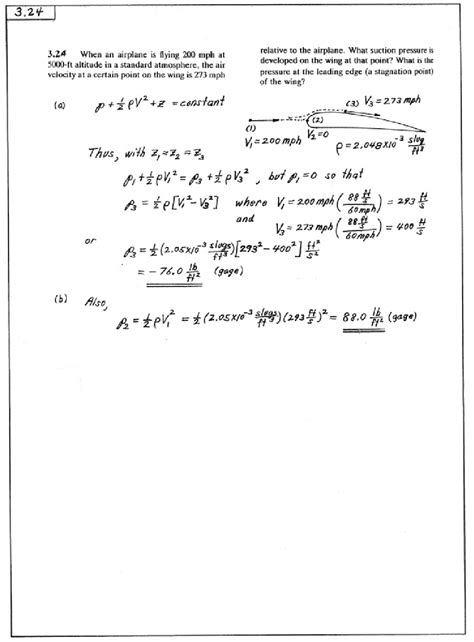 3.24
3.24 When an airplane is flying 200 mph at
5000-ft altitude in a standard atmosphere, the air
velocity at a certain point on the wing is 273 mph
relative to the airplane. What suction pressure is
developed on the wing at that point? What is the
pressure at the leading edge (a stagnation point)
of the wing?
(a) p + ½ ρV² + z = constant
(3) V₃ = 273 mph
(1) (2)
V₁ = 200 mph V₂ = 0
ρ = 2.048x10⁻³ slug/ft³
Thus, with z₁ = z₂ = z₃
p₁ + ½ ρV₁² = p₃ + ½ ρV₃² , but p₁ = 0 so that
p₃ = ½ ρ[V₁² - V₃²] where V₁ = 200 mph (88 ft/s / 60 mph) = 293 ft/s
and
V₃ = 273 mph (88 ft/s / 60 mph) = 400 ft/s
or
p₃ = ½ (2.05x10⁻³ slugs/ft³)[293² - 400²] ft²/s²
= -76.0 lb/ft² (gage)
(b) Also,
p₂ = ½ ρV₁² = ½ (2.05x10⁻³ slugs/ft³)(293 ft/s)² = 88.0 lb/ft² (gage)